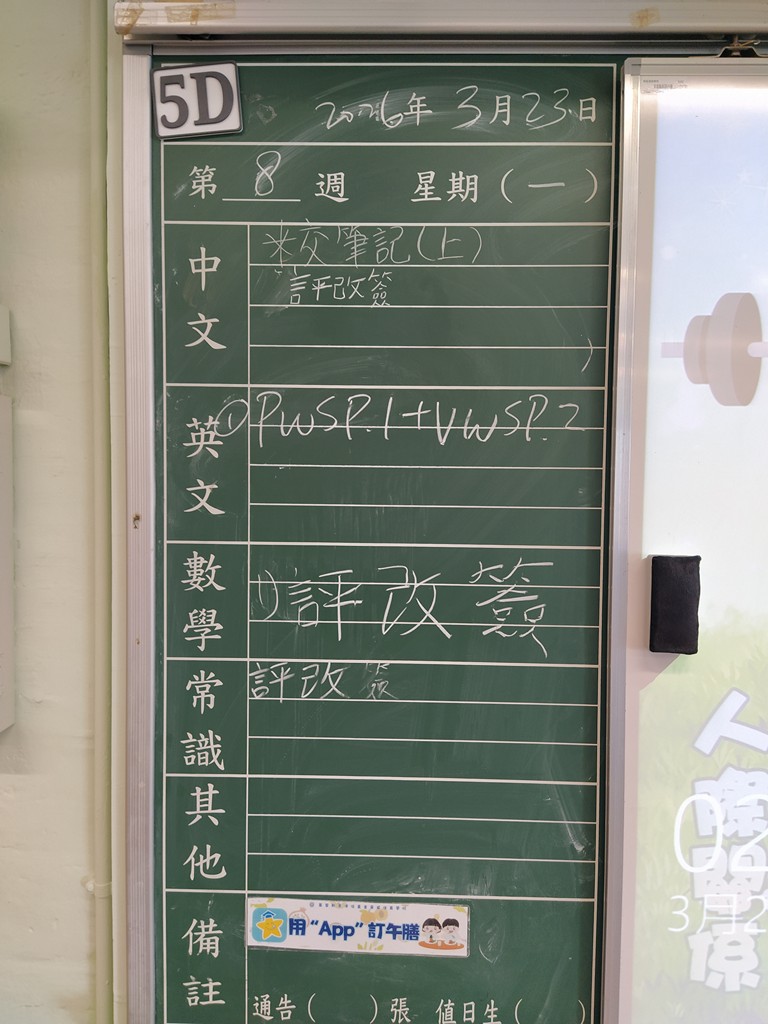 5D
2026年3月23日
第8週 星期(一)
中文
*交筆記(上)
評改簽
英文
①PWSP.1+VWSP.2
數學
1)評改簽
常識
評改簽
其他
備註
用“App”訂午膳
通告( )張 值日生( )
人際關係
02
3月2